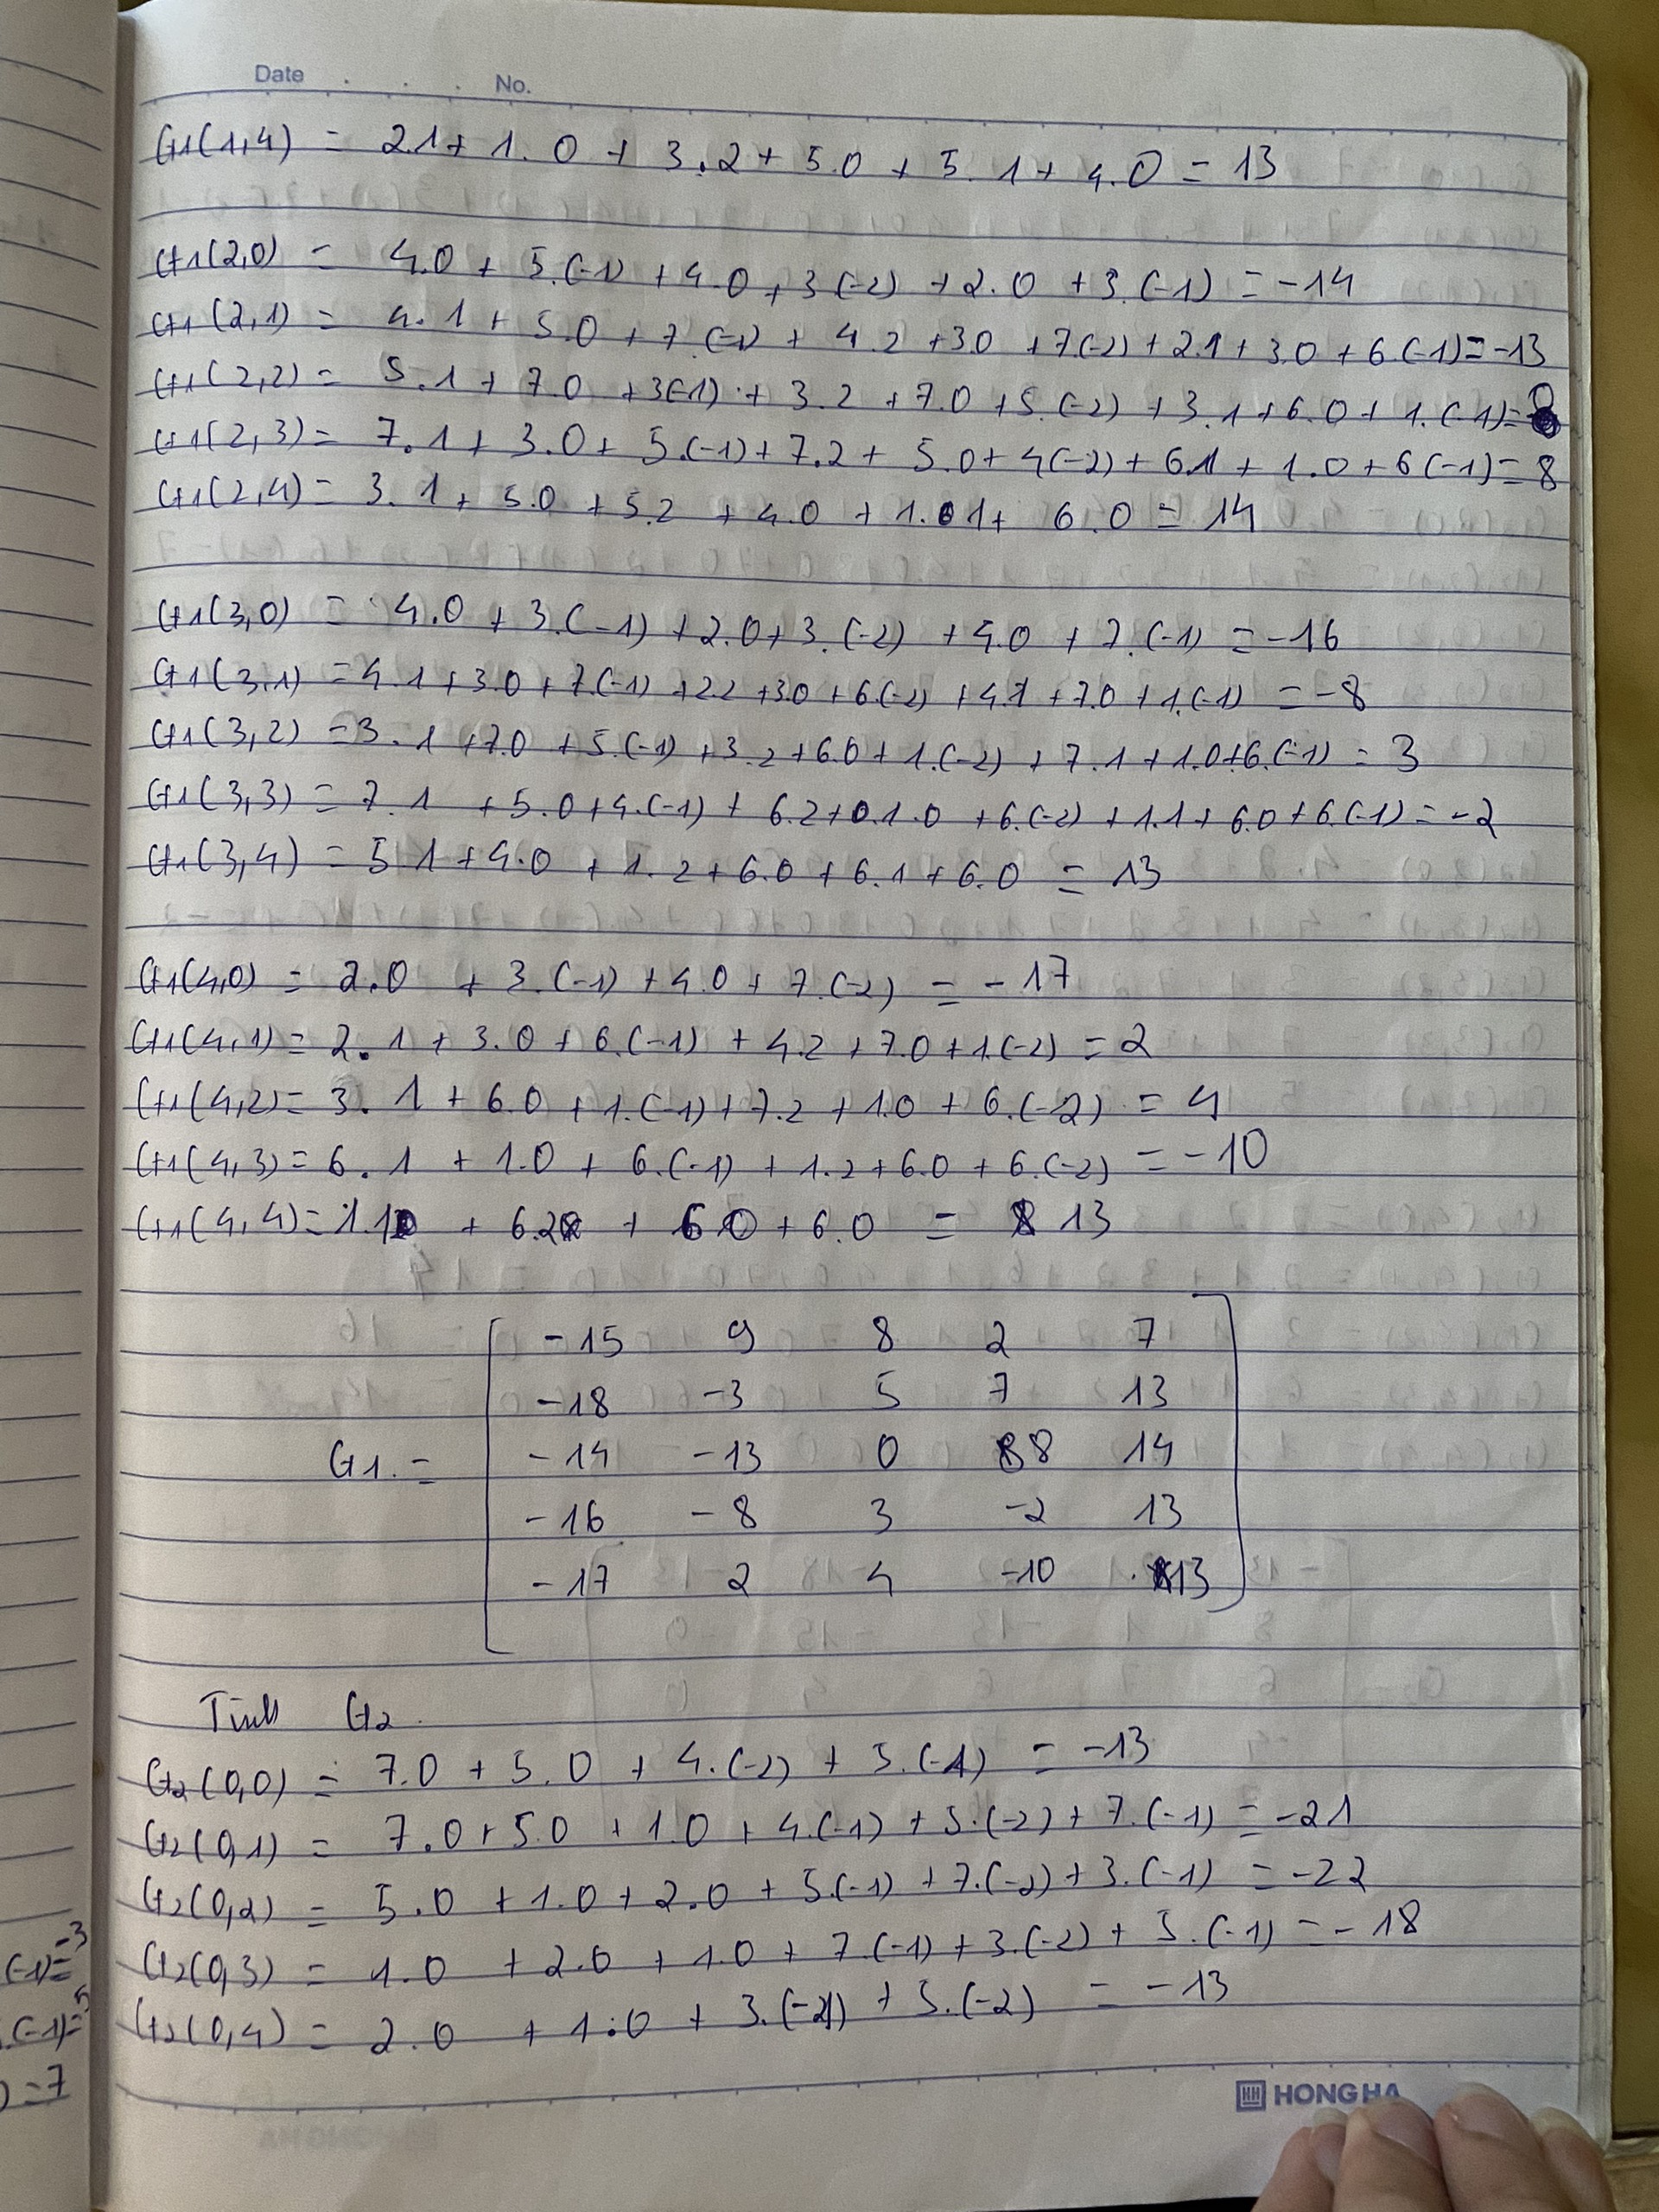 Date No.
G1(1,4) = 2.1 + 1.0 + 3.2 + 5.0 + 5.1 + 4.0 = 13
G1(2,0) = 4.0 + 5.(-1) + 4.0 + 3(-2) + 2.0 + 3.(-1) = -14
G1(2,1) = 4.1 + 5.0 + 7.(-1) + 4.2 + 3.0 + 7(-2) + 2.1 + 3.0 + 6.(-1) = -13
G1(2,2) = 5.1 + 7.0 + 3(-1) + 3.2 + 7.0 + 5.(-2) + 3.1 + 6.0 + 1.(-1) = 0
G1(2,3) = 7.1 + 3.0 + 5.(-1) + 7.2 + 5.0 + 4(-2) + 6.1 + 1.0 + 6(-1) = 8
G1(2,4) = 3.1 + 5.0 + 5.2 + 4.0 + 1.1 + 6.0 = 14
G1(3,0) = 4.0 + 3.(-1) + 2.0 + 3.(-2) + 4.0 + 7.(-1) = -16
G1(3,1) = 4.1 + 3.0 + 7.(-1) + 2.2 + 3.0 + 6.(-2) + 4.1 + 7.0 + 1.(-1) = -8
G1(3,2) = 3.1 + 7.0 + 5.(-1) + 3.2 + 6.0 + 1.(-2) + 7.1 + 1.0 + 6.(-1) = 3
G1(3,3) = 7.1 + 5.0 + 4.(-1) + 6.2 + 1.0 + 6.(-2) + 1.1 + 6.0 + 6.(-1) = -2
G1(3,4) = 5.1 + 4.0 + 1.2 + 6.0 + 6.1 + 6.0 = 13
G1(4,0) = 2.0 + 3.(-1) + 4.0 + 7.(-2) = -17
G1(4,1) = 2.1 + 3.0 + 6.(-1) + 4.2 + 7.0 + 1.(-2) = 2
G1(4,2) = 3.1 + 6.0 + 1.(-1) + 7.2 + 1.0 + 6.(-2) = 4
G1(4,3) = 6.1 + 1.0 + 6.(-1) + 1.2 + 6.0 + 6.(-2) = -10
G1(4,4) = 1.1 + 6.2 + 6.0 + 6.0 = 13
-15 9 8 2 7
-18 -3 5 7 13
G1 = -14 -13 0 8 14
-16 -8 3 -2 13
-17 2 4 -10 13
Tính G2
G2(0,0) = 7.0 + 5.0 + 4.(-2) + 5.(-1) = -13
G2(0,1) = 7.0 + 5.0 + 1.0 + 4.(-1) + 5.(-2) + 7.(-1) = -21
G2(0,2) = 5.0 + 1.0 + 2.0 + 5.(-1) + 7.(-2) + 3.(-1) = -22
G2(0,3) = 1.0 + 2.0 + 1.0 + 7.(-1) + 3.(-2) + 5.(-1) = -18
G2(0,4) = 2.0 + 1.0 + 3.(-1) + 5.(-2) = -13
(-1)=-3
.(-1)=5
) = 7
HONG HA